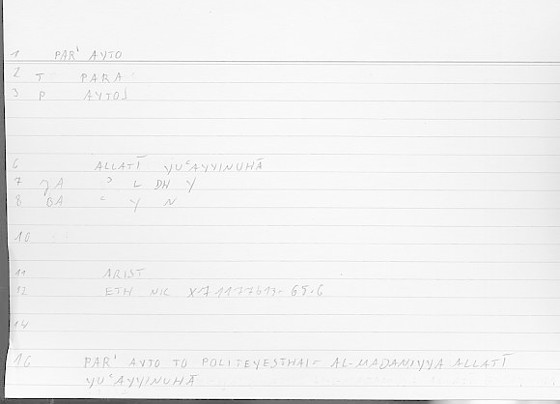 1 PAR' AYTO
2 T PARA
3 P AYTOS
6 ALLATĪ YUʿAYYINUHĀ
7 ʾ L DH Y
8 ʿ Y N
10
11 ARIST
12 ETH NIC
14
16 PAR' AYTO TO POLITEYESTHAI - AL-MADANIYYA ALLATĪ
YUʿAYYINUHĀ